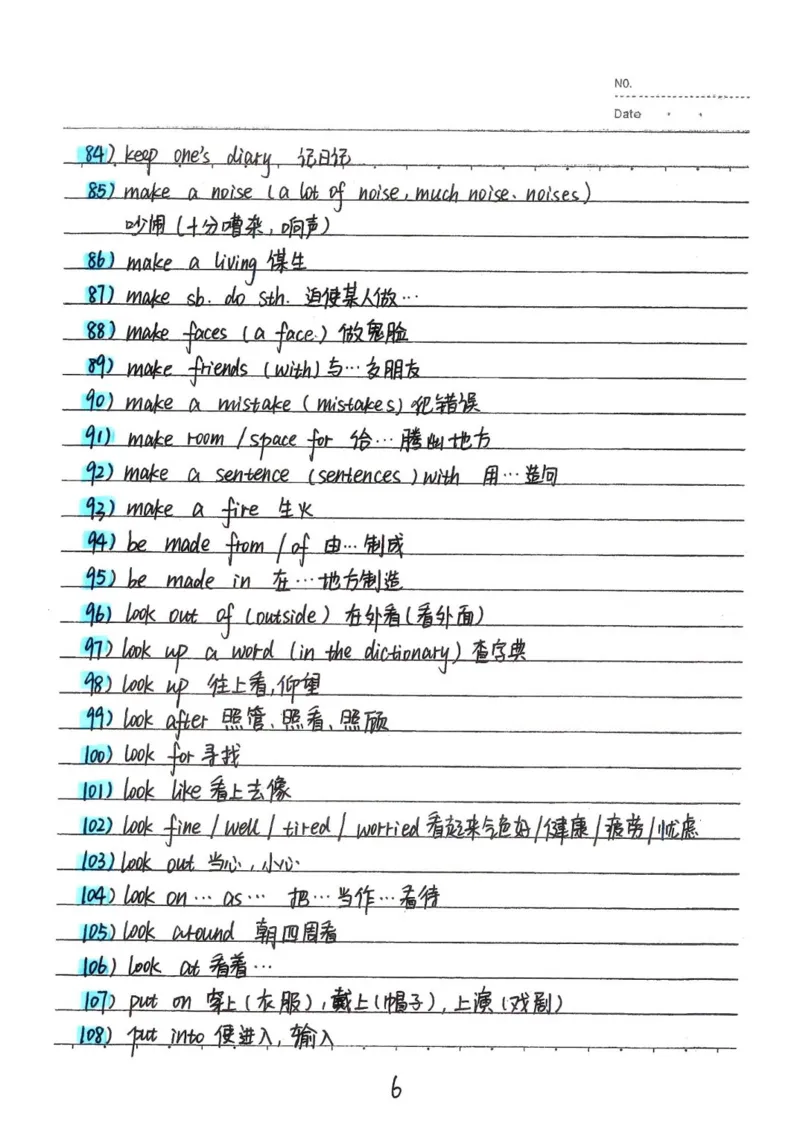 NO.
Date
84) keep one's diary 记日记
85) make a noise (a lot of noise, much noise、noises)
吵闹(十分嘈杂,响声)
86) make a living 谋生
87) make sb. do sth. 迫使某人做…
88) make faces (a face.) 做鬼脸
89) make friends (with) 与…交朋友
90) make a mistake (mistakes) 犯错误
91) make room / space for 给…腾出地方
92) make a sentence (sentences) with 用…造句
93) make a fire 生火
94) be made from / of 由…制成
95) be made in 在…地方制造
96) look out of (outside) 在外看(看外面)
97) look up a word (in the dictionary) 查字典
98) look up 往上看,仰望
99) look after 照管、照看、照顾
100) look for 寻找
101) look like 看上去像
102) look fine / well / tired / worried 看起来气色好/健康/疲劳/忧虑
103) look out 当心,小心
104) look on … as … 把…当作…看待
105) look around 朝四周看
106) look at 看着…
107) put on 穿上(衣服),戴上(帽子),上演(戏剧)
108) put into 使进入,输入
6